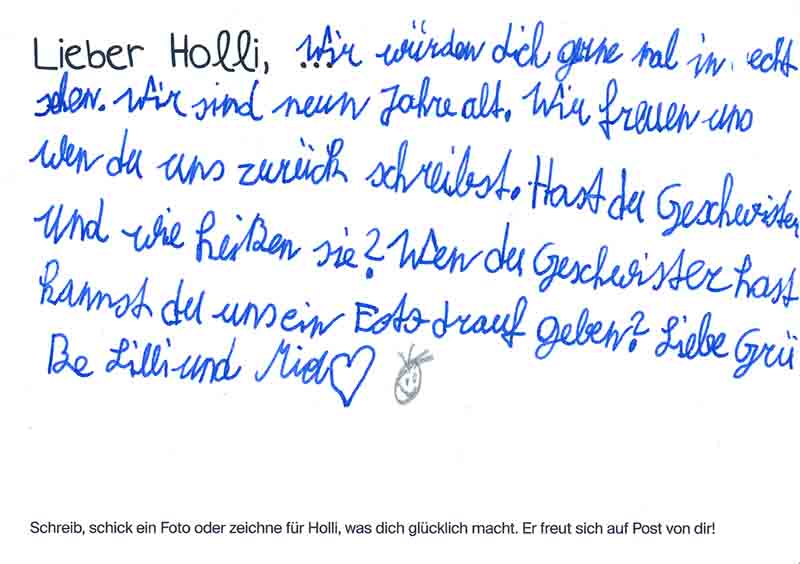 Lieber Holli, ... Wir würden dich gerne mal in echt
sehen. Wir sind neun Jahre alt. Wir freuen uns
wen du uns zurück schreibst. Hast du Geschwister
und wie heißen sie? Wen du Geschwister hast
kannst du uns ein Foto drauf geben? Liebe Grü
ße Lilli und Mia
Schreib, schick ein Foto oder zeichne für Holli, was dich glücklich macht. Er freut sich auf Post von dir!